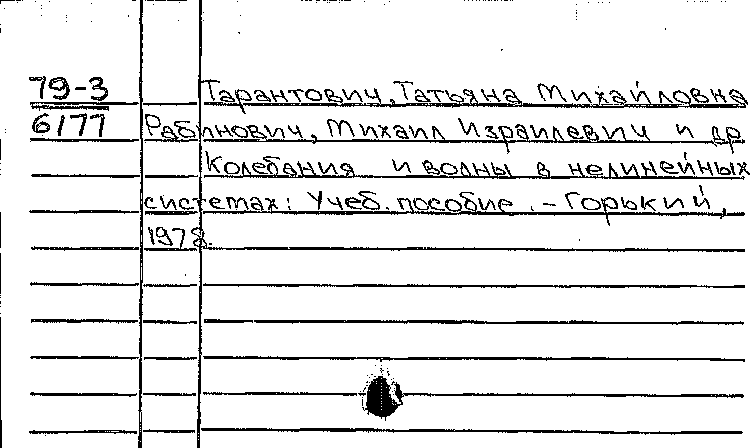 79-3 Тарантович, Татьяна Михайловна
6177 Рабинович, Михаил Израилевич и др
Колебания и волны в нелинейных
системах: Учеб. пособие. - Горький,
1978.